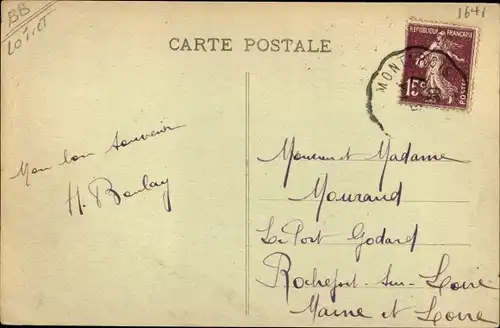 BB
LOIRET
1641
CARTE POSTALE
REPUBLIQUE FRANÇAISE
15c
POSTES
MONT
Mon bon souvenir
H. Boulay
Monsieur et Madame
Mourand
Le Port Godard
Rochefort-sur-Loire
Maine et Loire